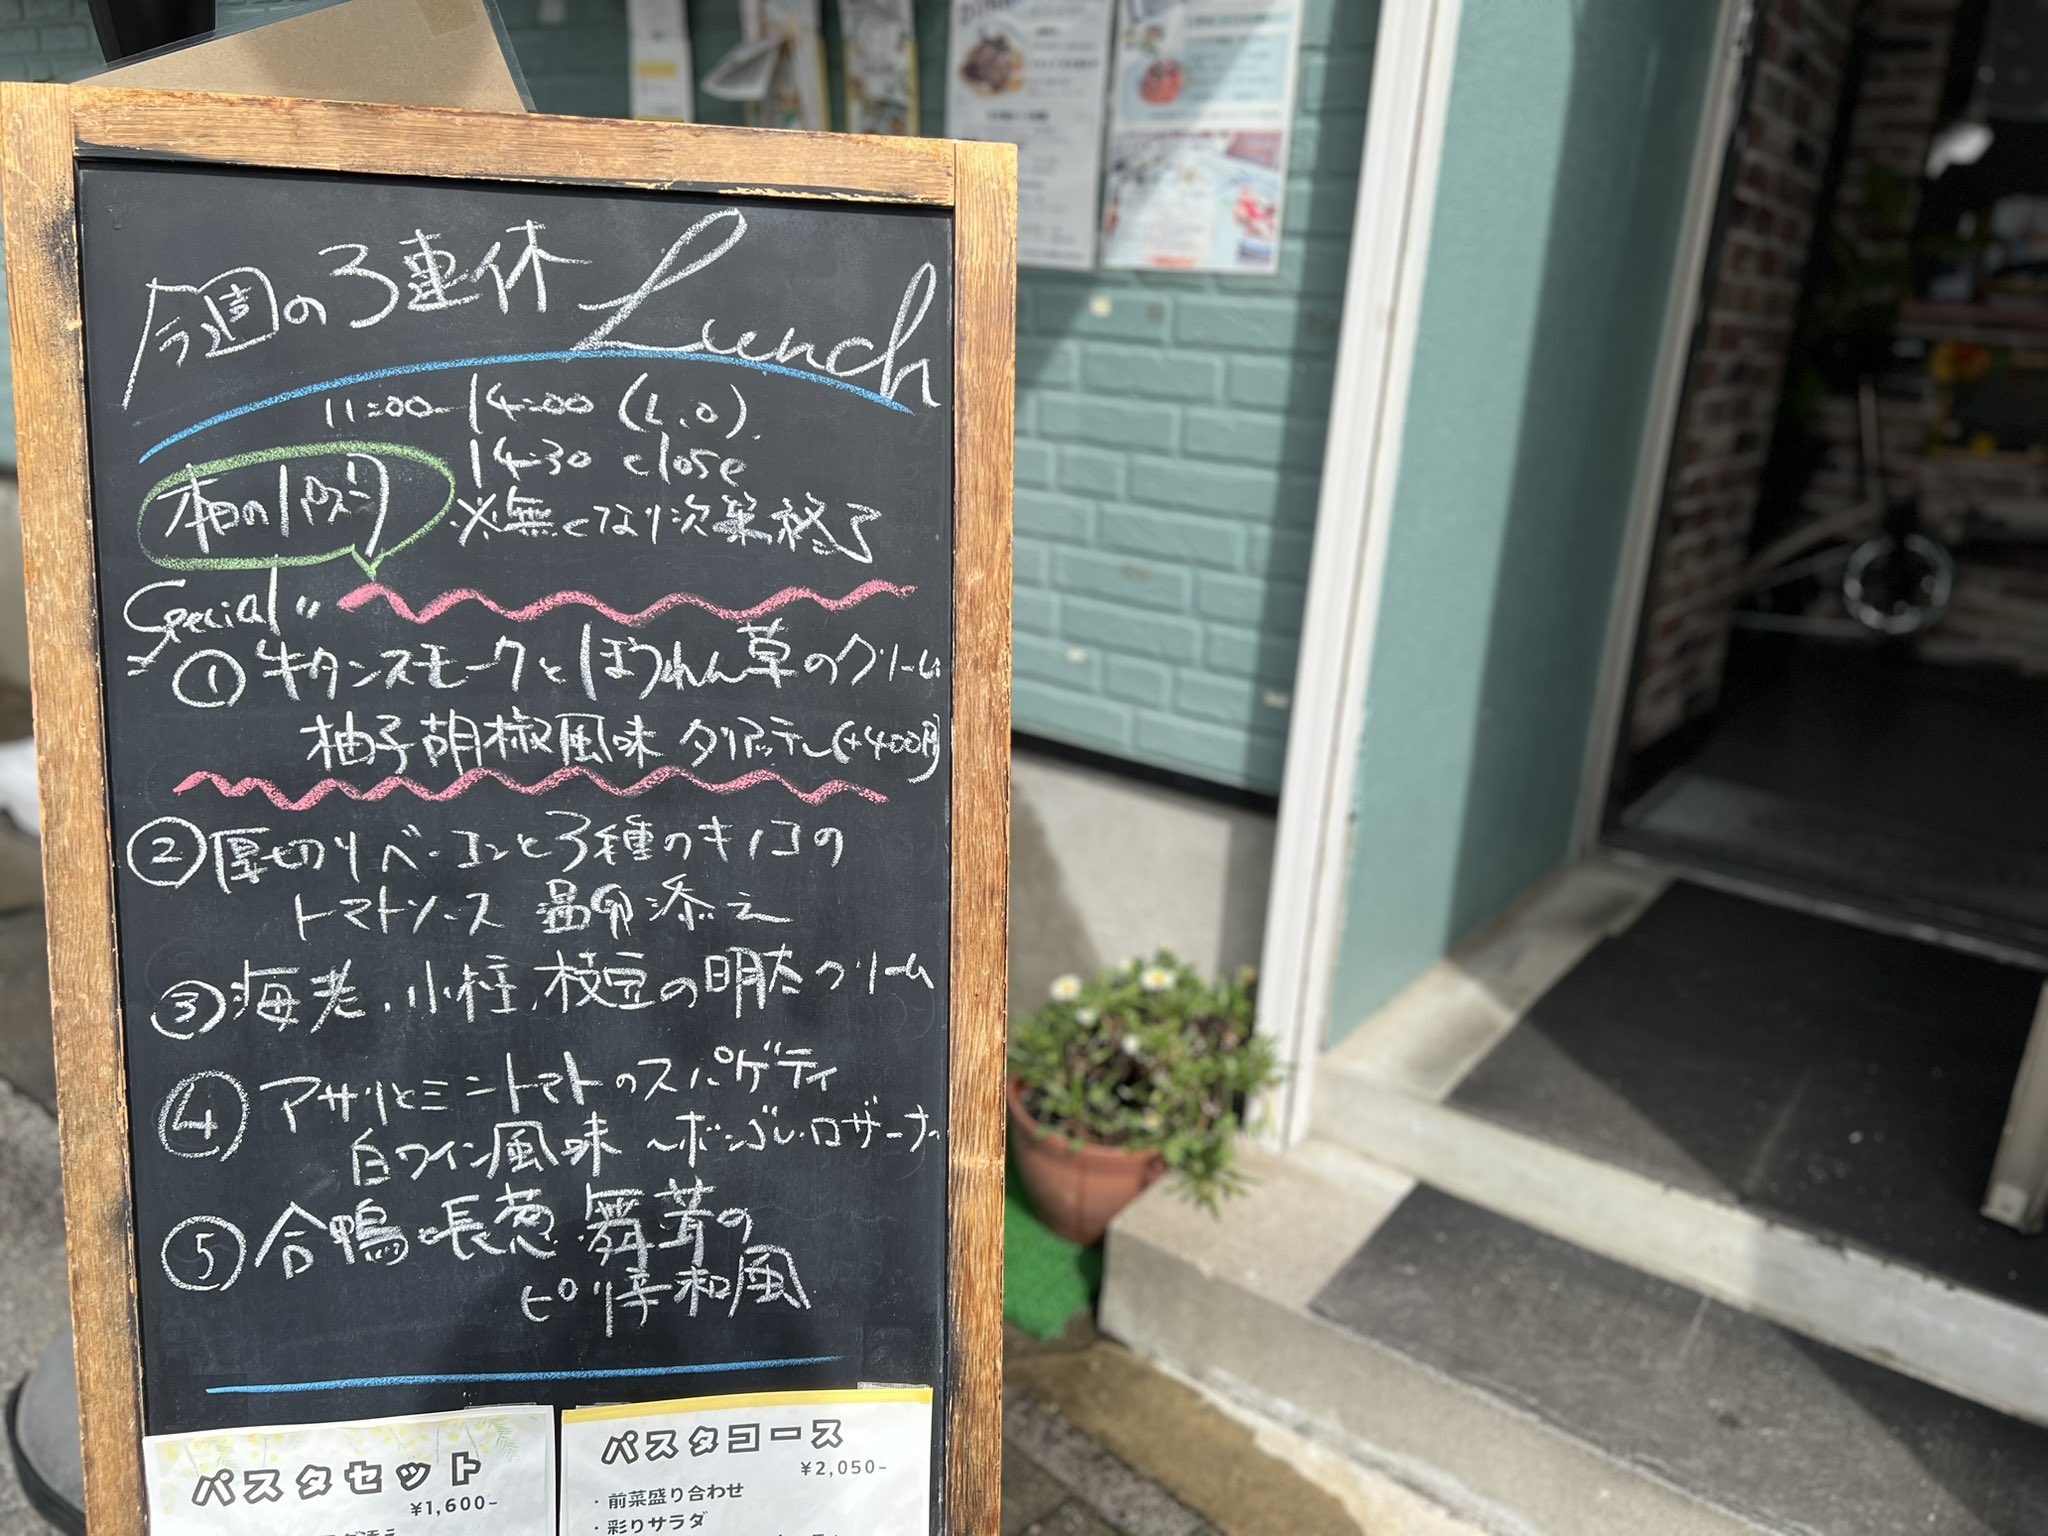 今週の3連休 Lunch
11:00-14:00 (L.O).
14:30 close
※無くなり次第終了
Special
①牛タンスモークとほうれん草のクリーム
柚子胡椒風味 タリアッテレ(+400円)
②厚切りベーコンと3種のキノコの
トマトソース 温卵添え
③海老、小柱、枝豆の明太クリーム
④アサリとミニトマトのスパゲティ
白ワイン風味 〜ボンゴレ・ロザート
⑤合鴨と長葱、舞茸の
ピリ辛和風
パスタセット
¥1,600-
パスタコース
¥2,050-
・前菜盛り合わせ
・彩りサラダ